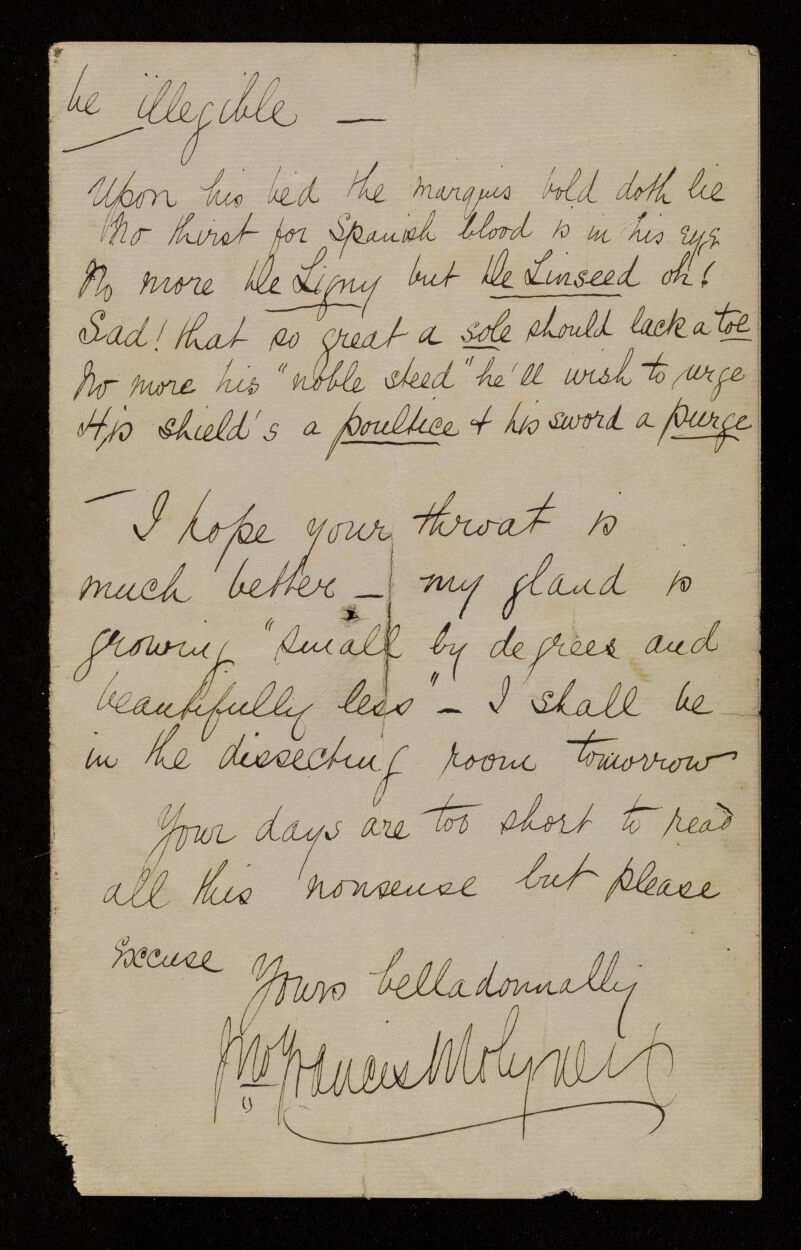 be illegible —
Upon his bed the marquis bold doth lie
No thirst for Spanish blood is in his eye
No more De Ligny but De Linseed oh!
Sad! that so great a sole should lack a toe
No more his "noble steed" he'll wish to urge
His shield's a poultice & his sword a purge
— I hope your throat is
much better — my gland is
growing "small by degrees and
beautifully less" — I shall be
in the dissecting room tomorrow
Your days are too short to read
all this nonsense but please
excuse
Yours belladonnally
Jno Francis Molyneux